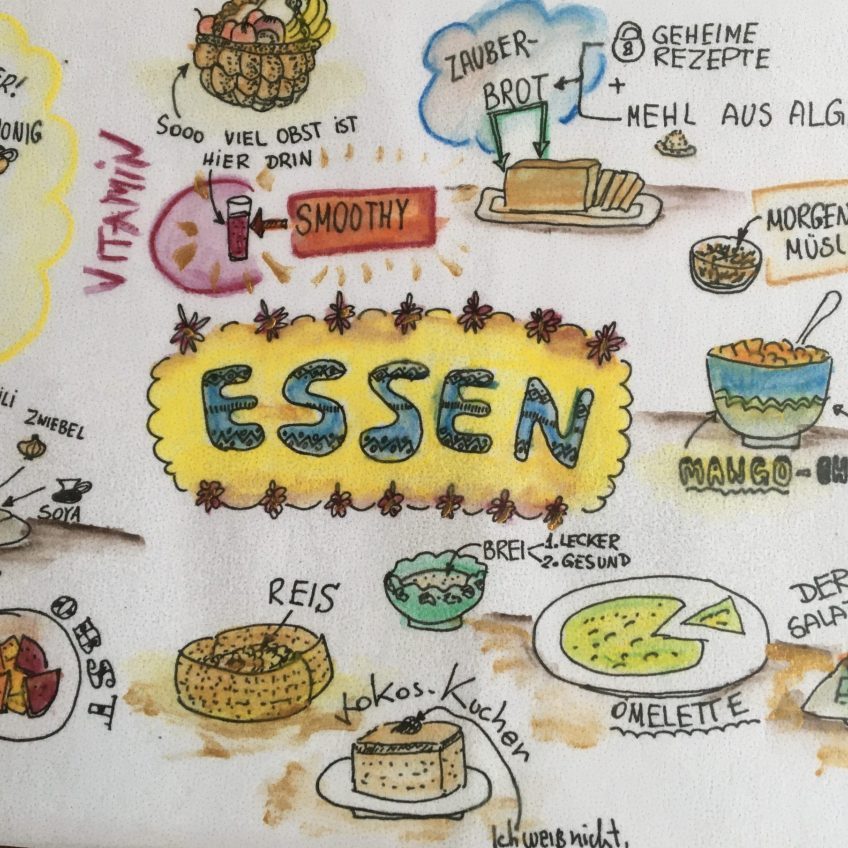 SOOO VIEL OBST IST
HIER DRIN
VITAMIN
SMOOTHY
ZAUBER-
BROT
8
GEHEIME
REZEPTE
+
MEHL AUS ALG
MORGEN
MÜSL
ESSEN
ZWIEBEL
SOYA
MANGO-
BREI
1. LECKER
2. GESUND
OBST
REIS
KOKOS-KUCHEN
OMELETTE
DER
SALAT
Ich weiß nicht,